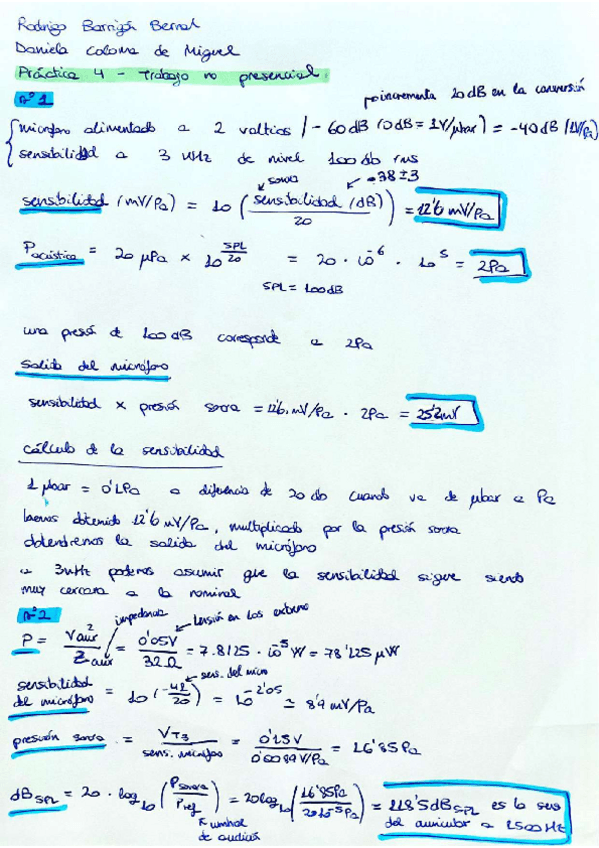 Rodrigo Barrigón Bernal
Daniela Coloma de Miguel
Práctica 4 - Trabajo no presencial.
nº 1
incrementa 20 dB en la conversión
micrófono alimentado a 2 voltios / - 60 dB (0 dB = 1V/μbar) = -40 dB (1V/Pa)
sensibilidad a 3 kHz de nivel 100 db rms
sonora
-38 ± 3
sensibilidad (mV/Pa) = 10 (sensibilidad (dB) / 20) = 12'6 mV/Pa
Pacústica = 20 μPa × 10^(SPL/20) = 20 · 10^-6 · 10^5 = 2Pa
SPL = 100 dB
una presión de 100 dB corresponde a 2Pa
Salida del micrófono
sensibilidad × presión sonora = 12'6 mV/Pa · 2Pa = 25'2 mV
cálculo de la sensibilidad
1 μbar = 0'1 Pa a diferencia de 20 db cuando va de μbar a Pa
hemos obtenido 12'6 mV/Pa, multiplicado por la presión sonora
obtendremos la salida del micrófono
a 3kHz podemos asumir que la sensibilidad sigue siendo
muy cercana a la nominal
nº 2
impedancia
tensión en los extremo
P = Vaur² / Zaur = 0'05V / 32 Ω = 7.8125 · 10^-5 W = 78'125 μW
sens. del micro
sensibilidad del micrófono = 10 (-41/20) = 10^-2'05 ≃ 8'9 mV/Pa
presión sonora = VT3 / sens. micrófono = 0'15V / 0'0089 V/Pa = 16'85 Pa
dB SPL = 20 · log10 (Psonora / Pref) = 20 log10 (16'85Pa / 20·10^-5 Pa) = 118'5 dB SPL es la sens
del auricular a 1500 Hz
umbral
de audición